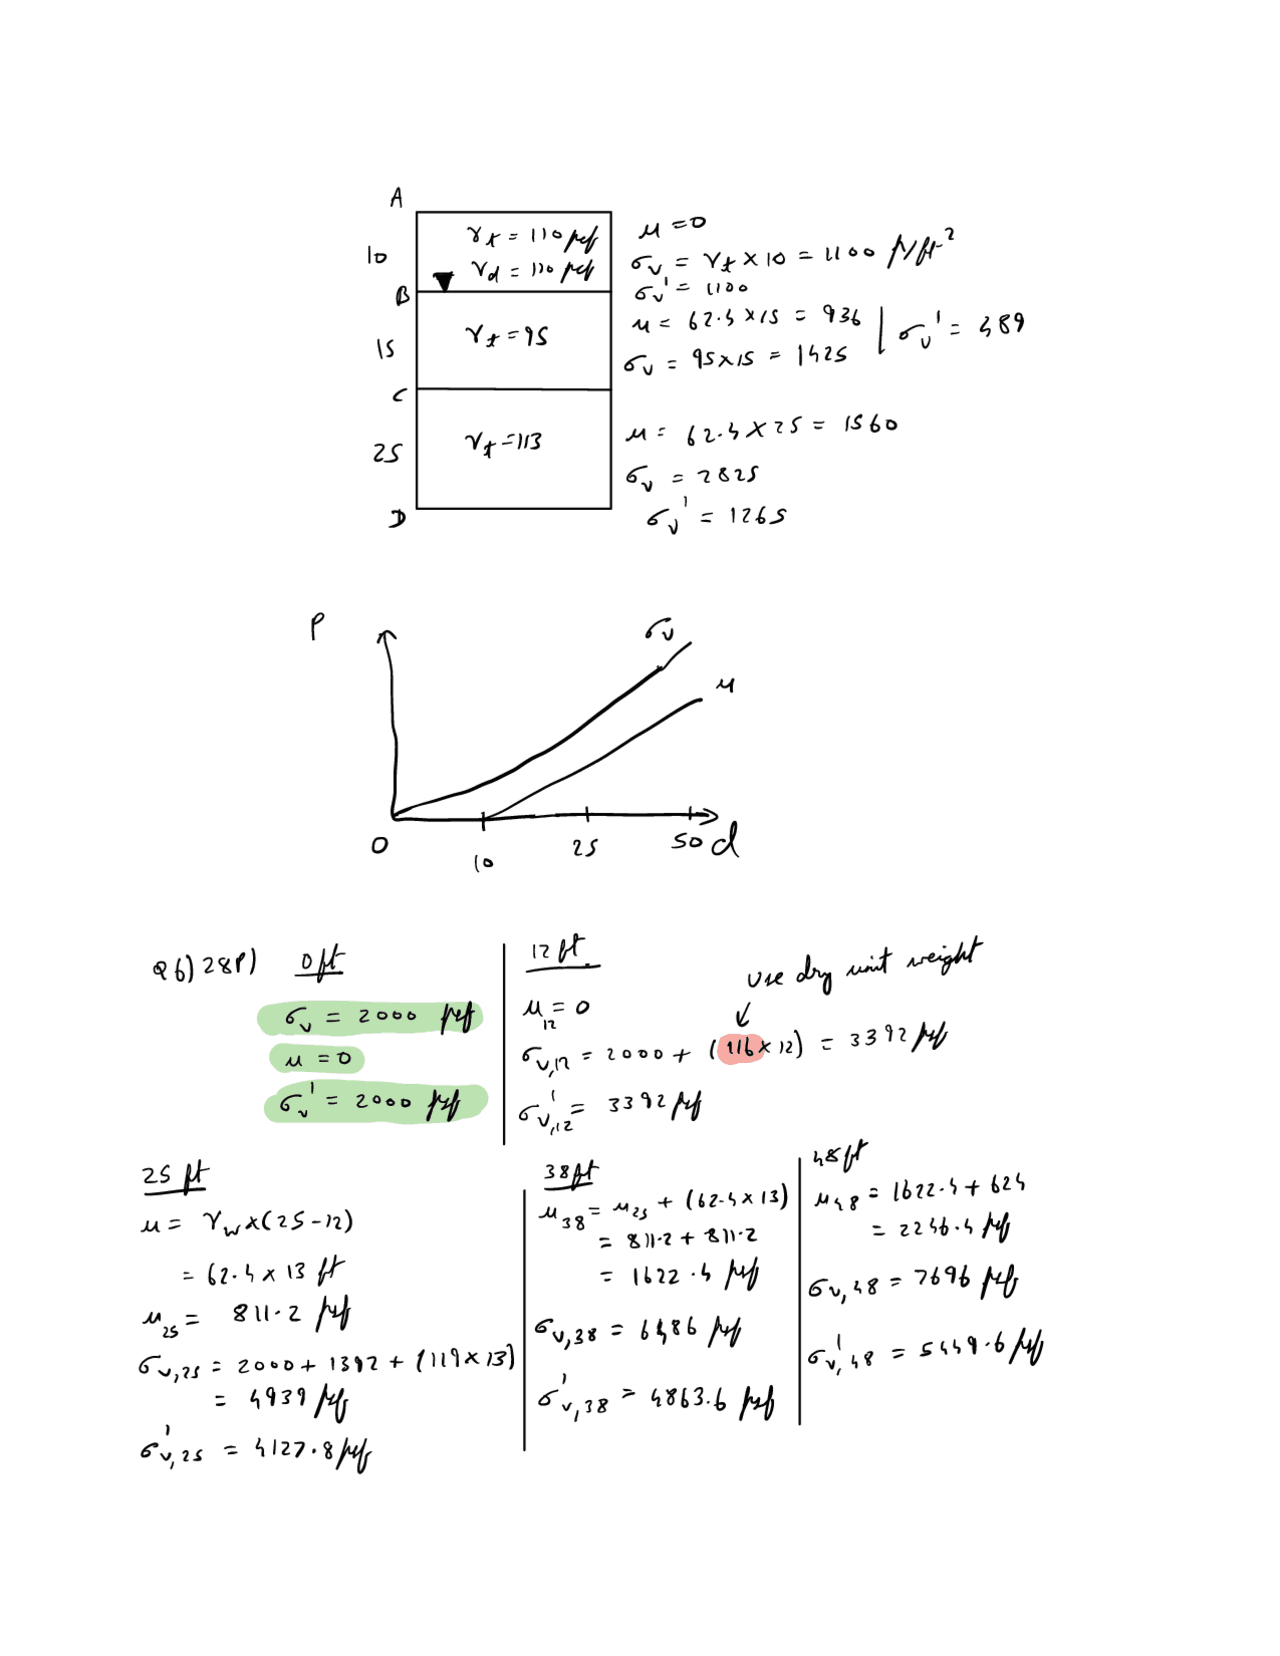 A
10
γt = 110 pcf
γd = 110 pcf
B
15
γt = 95
C
25
γt = 113
D
u = 0
σv = γt × 10 = 1100 p/ft²
σv' = 1100
u = 62.4 × 15 = 936 | σv' = 489
σv = 95 × 15 = 1425
u = 62.4 × 25 = 1560
σv = 2825
σv' = 1265
P
σv
u
0 10 25 50 d
Q6) 28P)
0 ft
σv = 2000 psf
u = 0
σv' = 2000 psf
12 ft.
use dry unit weight
u12 = 0
σv,12 = 2000 + (116 × 12) = 3392 psf
σv,12' = 3392 psf
25 ft
u = γw × (25 - 12)
= 62.4 × 13 ft
u25 = 811.2 psf
σv,25 = 2000 + 1392 + (119 × 13)
= 4939 psf
σv,25' = 4127.8 psf
38 ft
u38 = u25 + (62.4 × 13)
= 811.2 + 811.2
= 1622.4 psf
σv,38 = 6486 psf
σv,38' = 4863.6 psf
48 ft
u48 = 1622.4 + 624
= 2246.4 psf
σv,48 = 7696 psf
σv,48' = 5449.6 psf